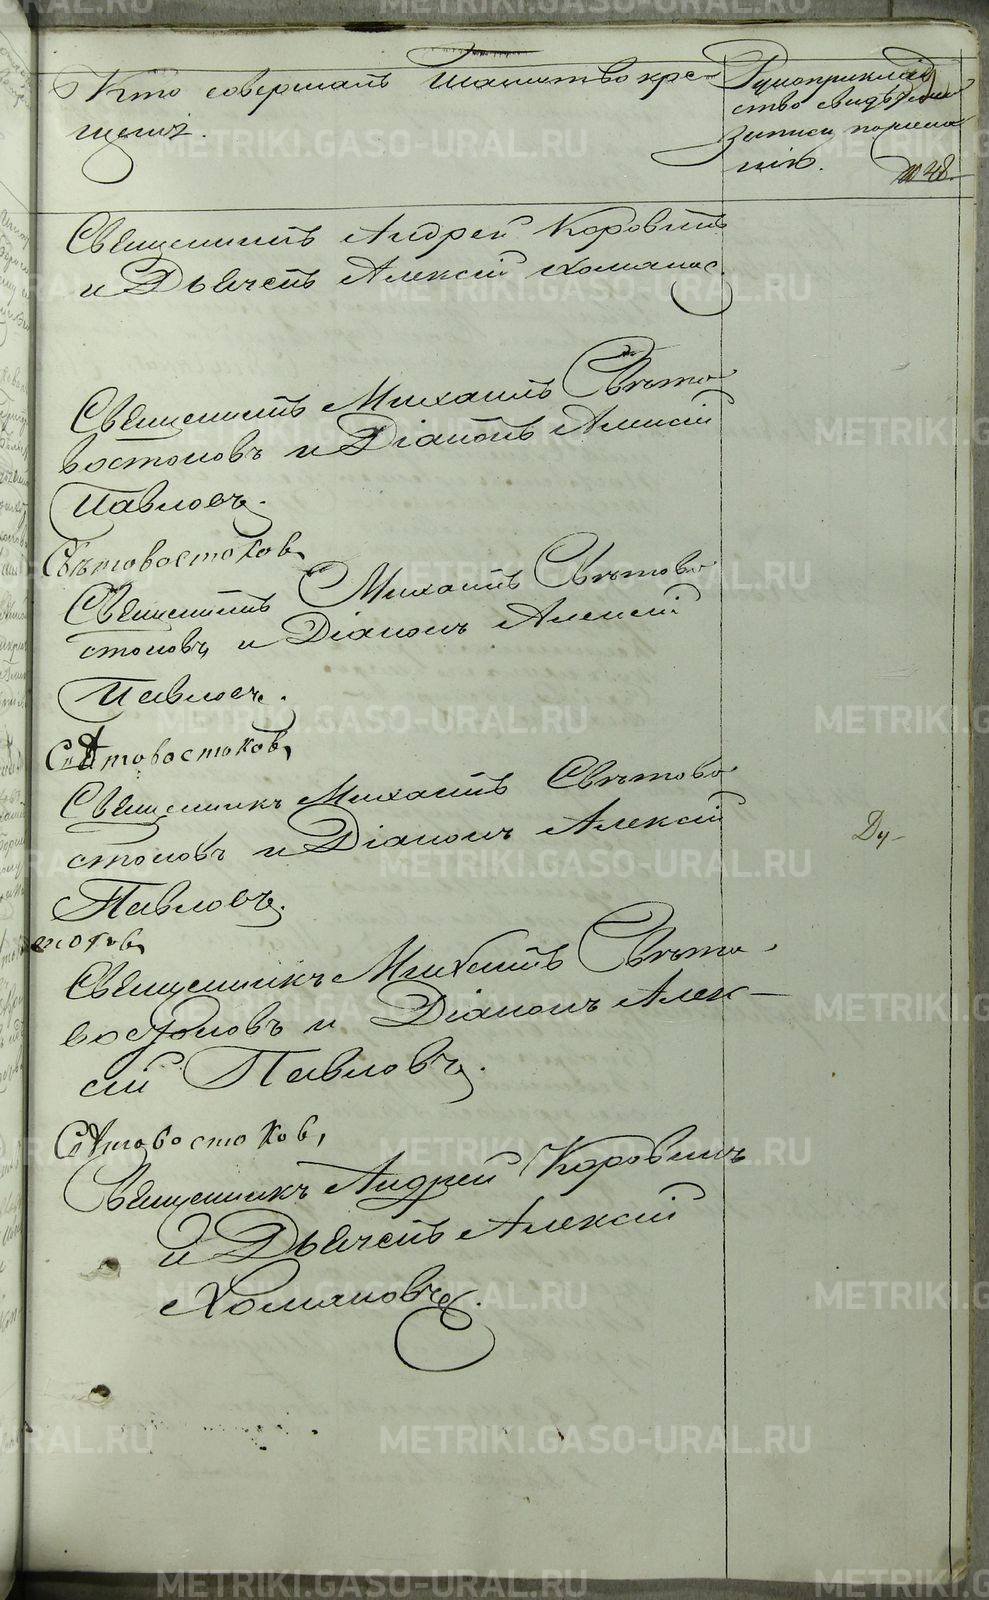 Кто совершалъ таинство кре-
щенія.
Рукоприклад
ство свидѣтелей
записи по жела
нію.
48.
Священникъ Андрей Коровинъ
и Дьячекъ Алексій Хомяков.
Священникъ Михаилъ Свѣто
востоковъ и Діаконъ Алексій
Павловъ.
Свѣтовостоков,
Священникъ Михаилъ Свѣтово
стоковъ и Діаконъ Алексій
Павловъ.
Свѣтовостоков,
Священникъ Михаилъ Свѣтово
стоковъ и Діаконъ Алексій
Павловъ.
Ду-
стоков,
Священникъ Михаилъ Свѣто
востоковъ и Діаконъ Алек-
сій Павловъ.
Свѣтовостоков,
Священникъ Андрей Коровинъ
и Дьячекъ Алексій
Хомяковъ.
METRIKI.GASO-URAL.RU